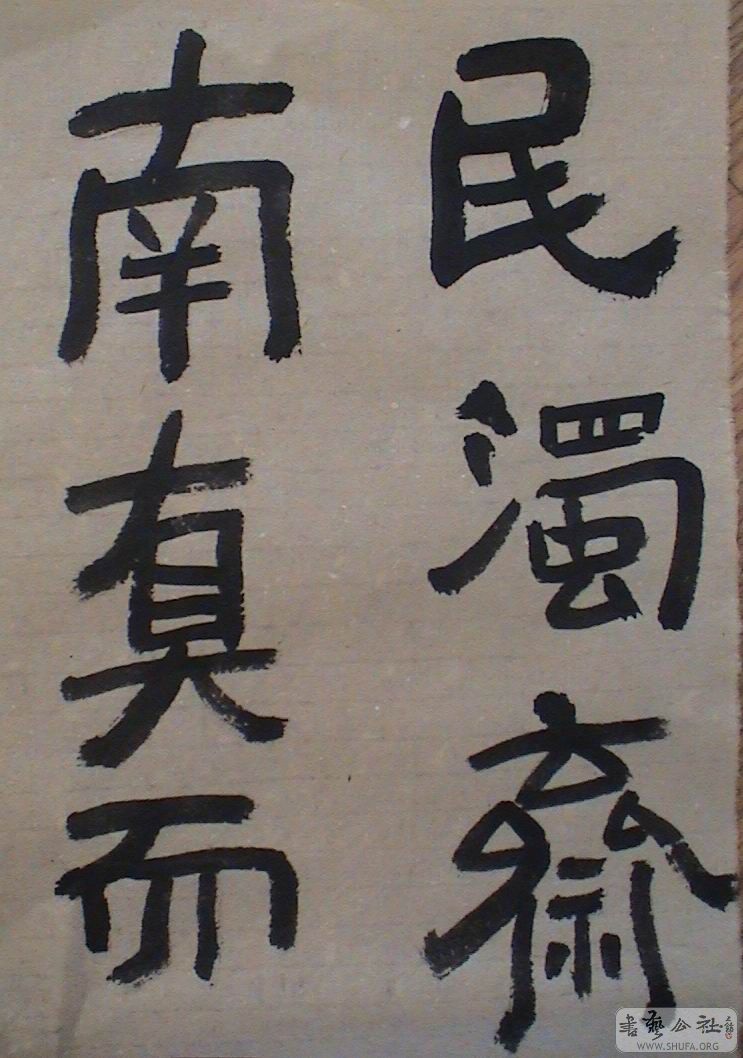 民濁齋
南真而
書藝公社
WWW.SHUFA.ORG